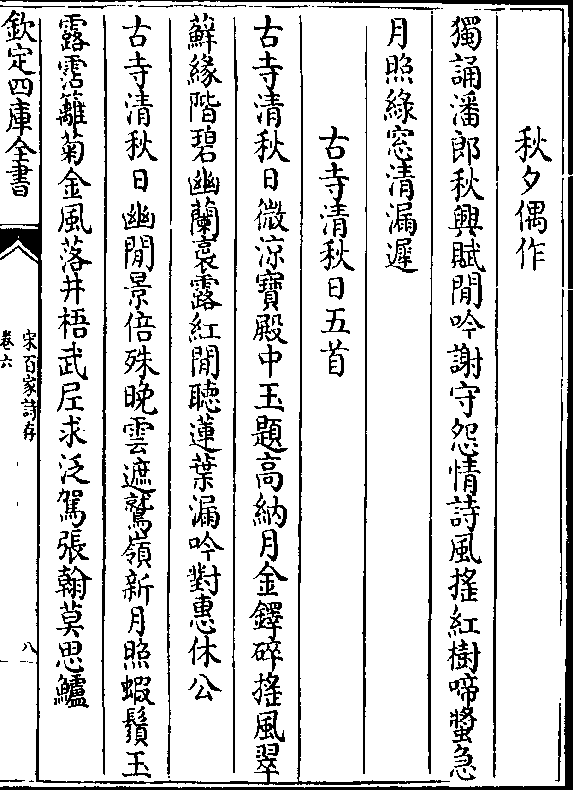 秋夕偶作
獨誦潘郎秋興賦閒吟謝守怨情詩風搖紅樹啼螿急
月照綠窓清漏遲
古寺清秋日五首
古寺清秋日微涼寶殿中玉題高納月金鐸碎搖風翠
蘚緣階碧幽蘭裛露紅閒聽蓮葉漏吟對惠休公
古寺清秋日幽閒景倍殊晚雲遮鷲嶺新月照蝦鬚玉
露霑籬菊金風落井梧武丘求泛駕張翰莫思鱸
欽定四庫全書
宋百家詩存
卷六
八